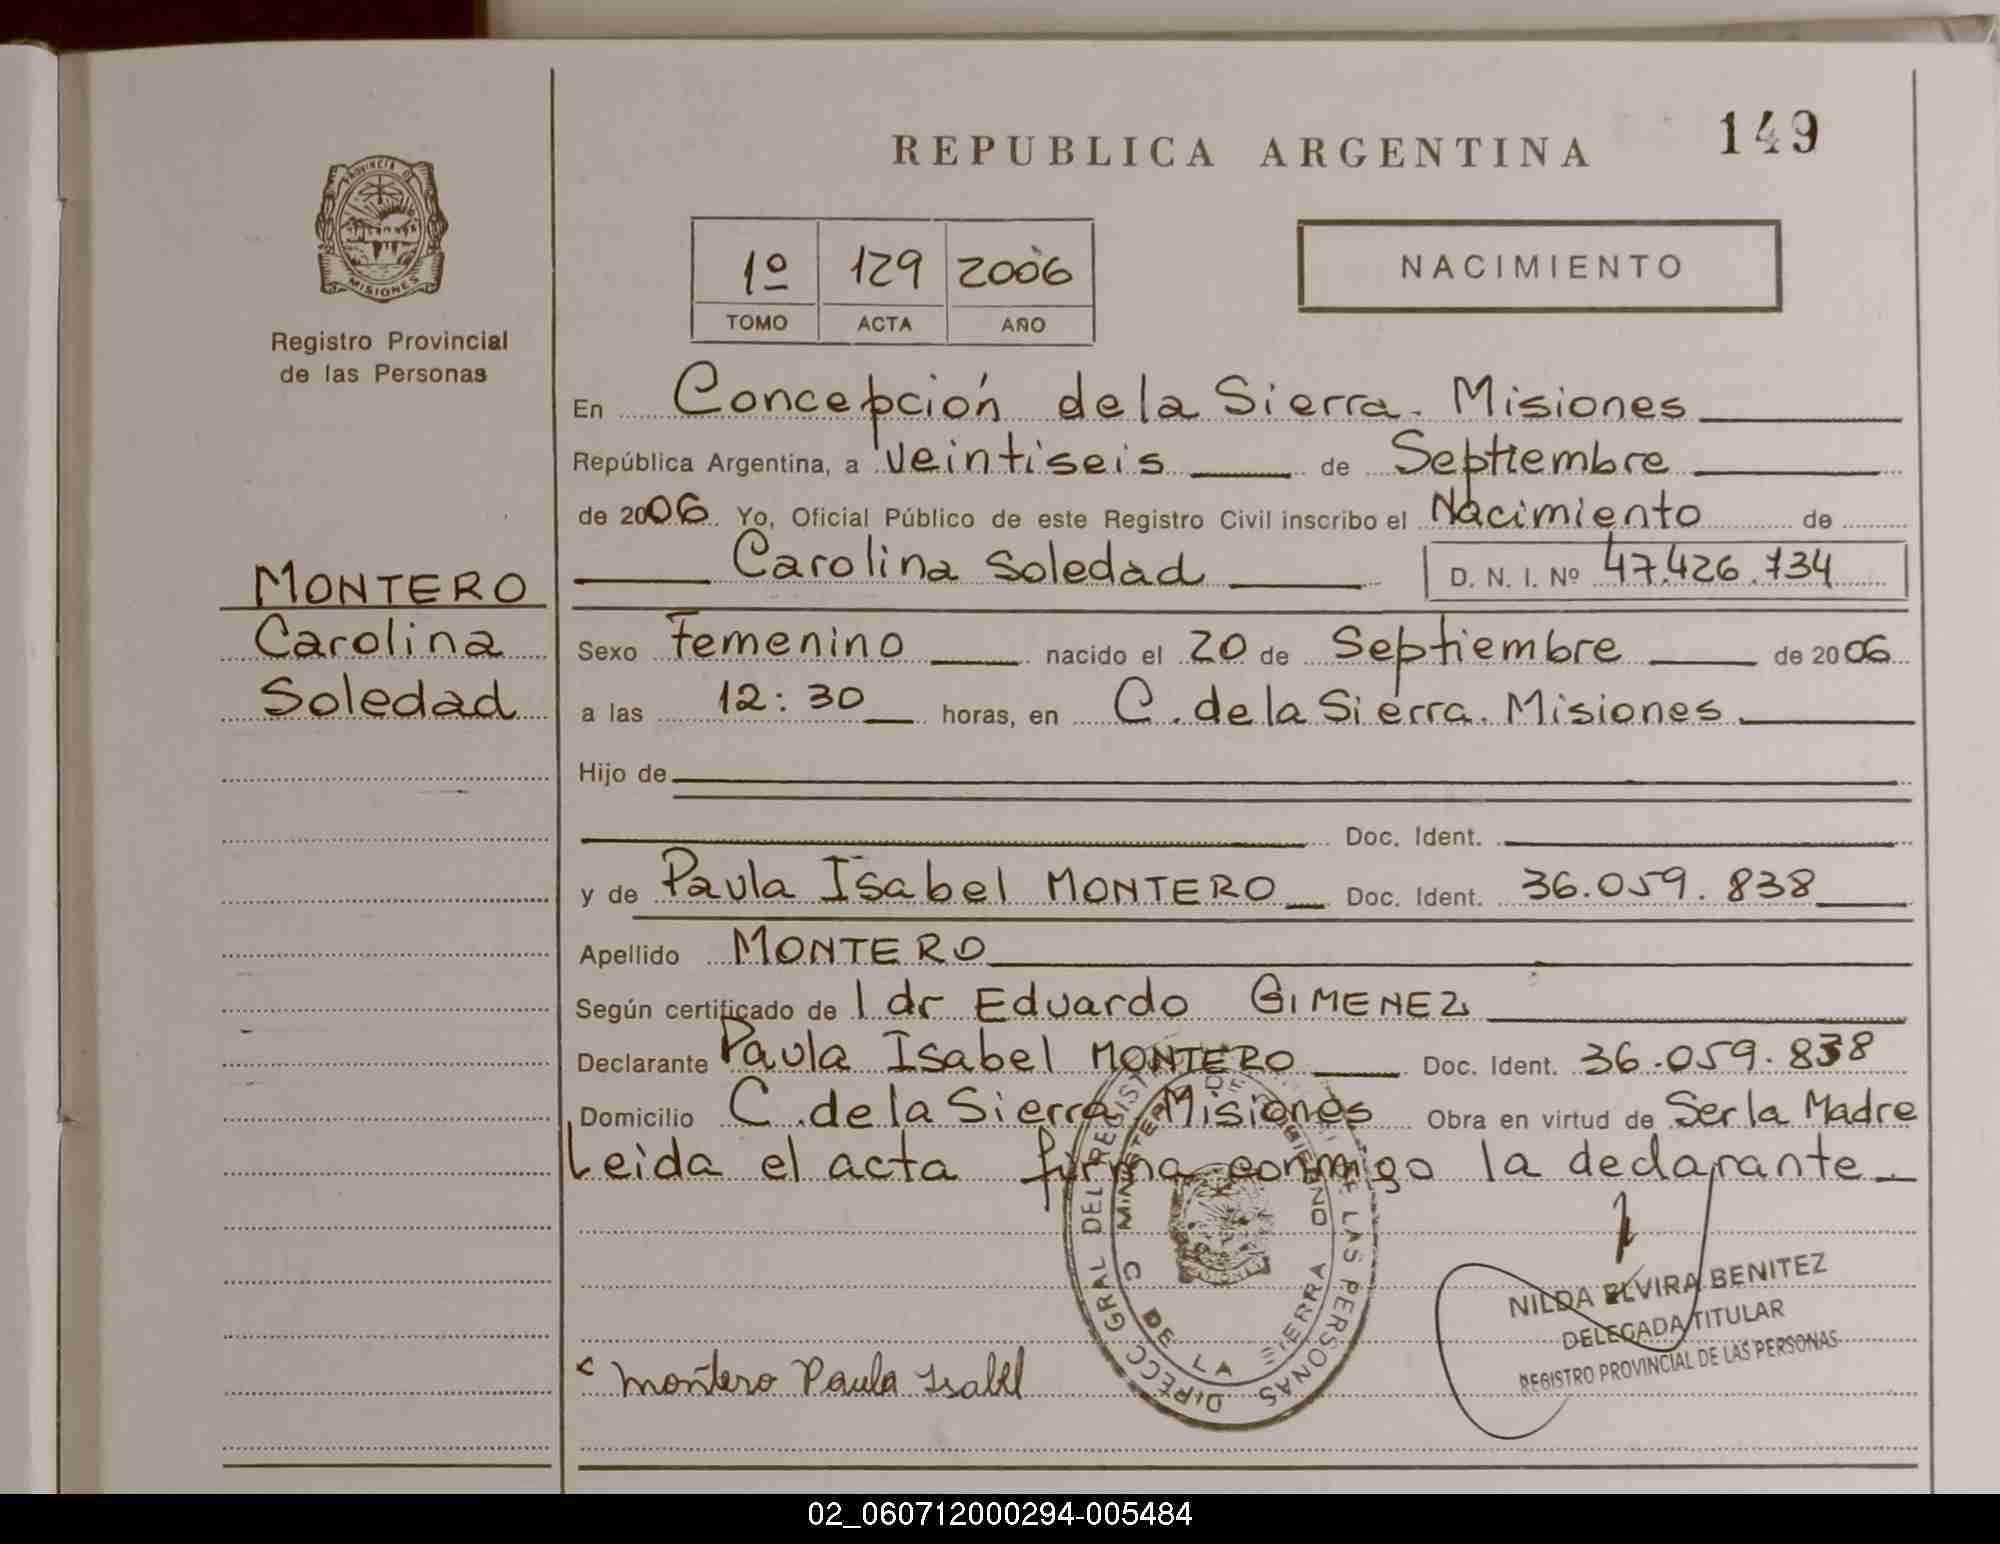 REPUBLICA ARGENTINA
149
PROVINCIA DE
MISIONES
Registro Provincial
de las Personas
1º 129 2006
TOMO ACTA AÑO
NACIMIENTO
En Concepción de la Sierra. Misiones
República Argentina, a veintiseis de Septiembre
de 2006 Yo, Oficial Público de este Registro Civil inscribo el Nacimiento de
Carolina Soledad D. N. I. Nº 47.426.734
MONTERO
Carolina
Soledad
Sexo Femenino nacido el 20 de Septiembre de 2006
a las 12:30 horas, en C. de la Sierra. Misiones
Hijo de
Doc. Ident.
y de Paula Isabel MONTERO Doc. Ident. 36.059.838
Apellido MONTERO
Según certificado de l dr Eduardo GIMENEZ
Declarante Paula Isabel MONTERO Doc. Ident. 36.059.838
Domicilio C. de la Sierra Misiones Obra en virtud de Ser la Madre
Leida el acta firma conmigo la declarante
DIRECC GRAL DEL REGIST DE LAS PERSONAS
MINISTERIO DE GOBIERNO
C DE LA SIERRA
NILDA ELVIRA BENITEZ
DELEGADA TITULAR
REGISTRO PROVINCIAL DE LAS PERSONAS
Montero Paula Isabel
02_060712000294-005484